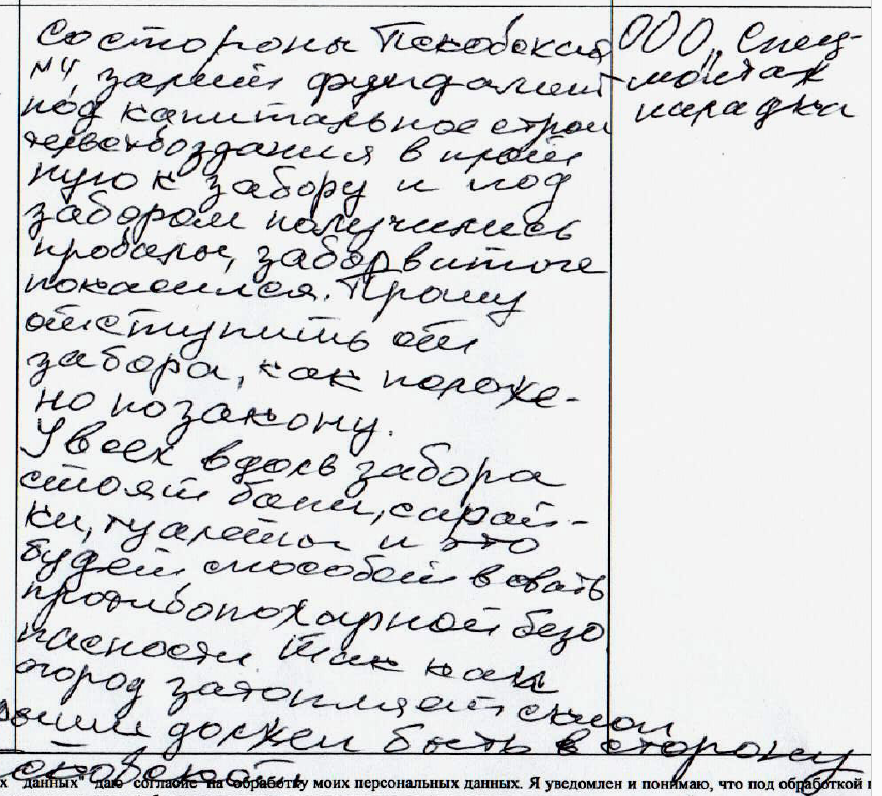 Со стороны Псковской ООО „Спец-
№4, залит фундамент монтаж
под капитальное строи наладка
здания в
ную к забору и под
забором получились
провалы, забор в итоге
покосился. Прошу
отступить от
забора, как положе-
но по закону.
У всех вдоль забора
стоят бани, сарай-
ки, туалеты и это
будет способствовать
противопожарной безо
пасности так как
огород затопляет
должен быть в сторону
Псковской
х данных" даю согласие на обработку моих персональных данных. Я уведомлен и понимаю, что под обработкой